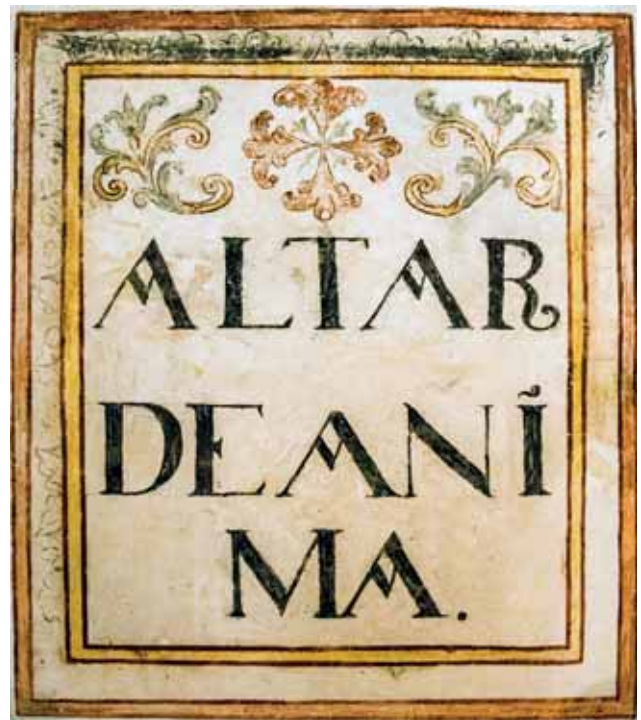 ALTAR
DEANĨ
MA.